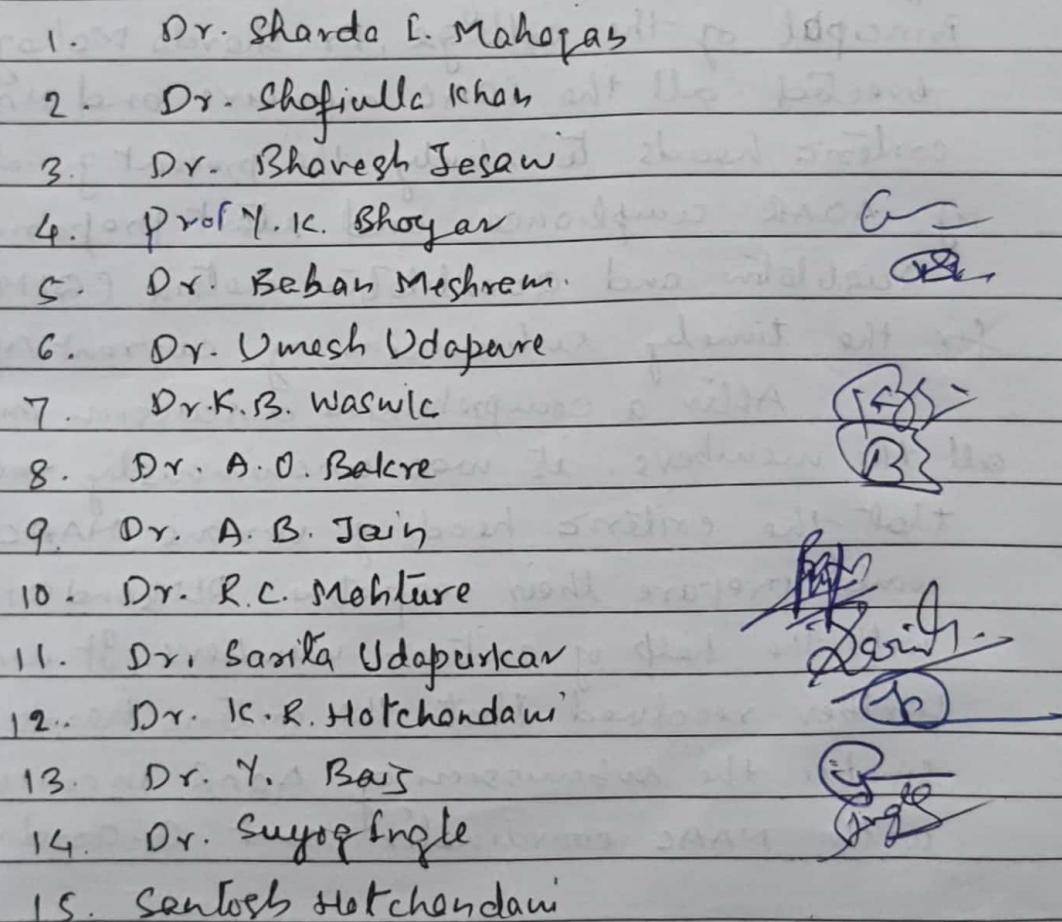 1. Dr. Sharda C. Mahogas
2 Dr. Shafiulla Khan
3. Dr. Bhavesh Jesawi
4. Prof Y. K. Bhoyar
5. Dr. Beban Meshrem.
6. Dr. Umesh Udapure
7. Dr. K. B. Waswlc
8. Dr. A. O. Bakre
9. Dr. A. B. Jain
10. Dr. R. C. Mohture
11. Dr. Sarita Udapurkar
12.. Dr. K. R. Hotchandani
13. Dr. Y. Bais
14. Dr. Suyog Ingle
15. Santosh Hotchandani